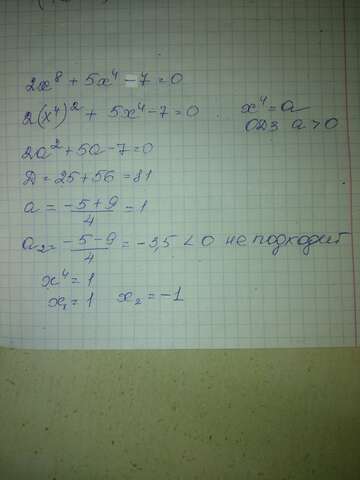 2x⁸ + 5x⁴ - 7 = 0
2(x⁴)² + 5x⁴ - 7 = 0 x⁴ = a
ОДЗ a > 0
2a² + 5a - 7 = 0
D = 25 + 56 = 81
a = (-5 + 9)/4 = 1
a₂ = (-5 - 9)/4 = -3,5 < 0 не подходит
x⁴ = 1
x₁ = 1 x₂ = -1